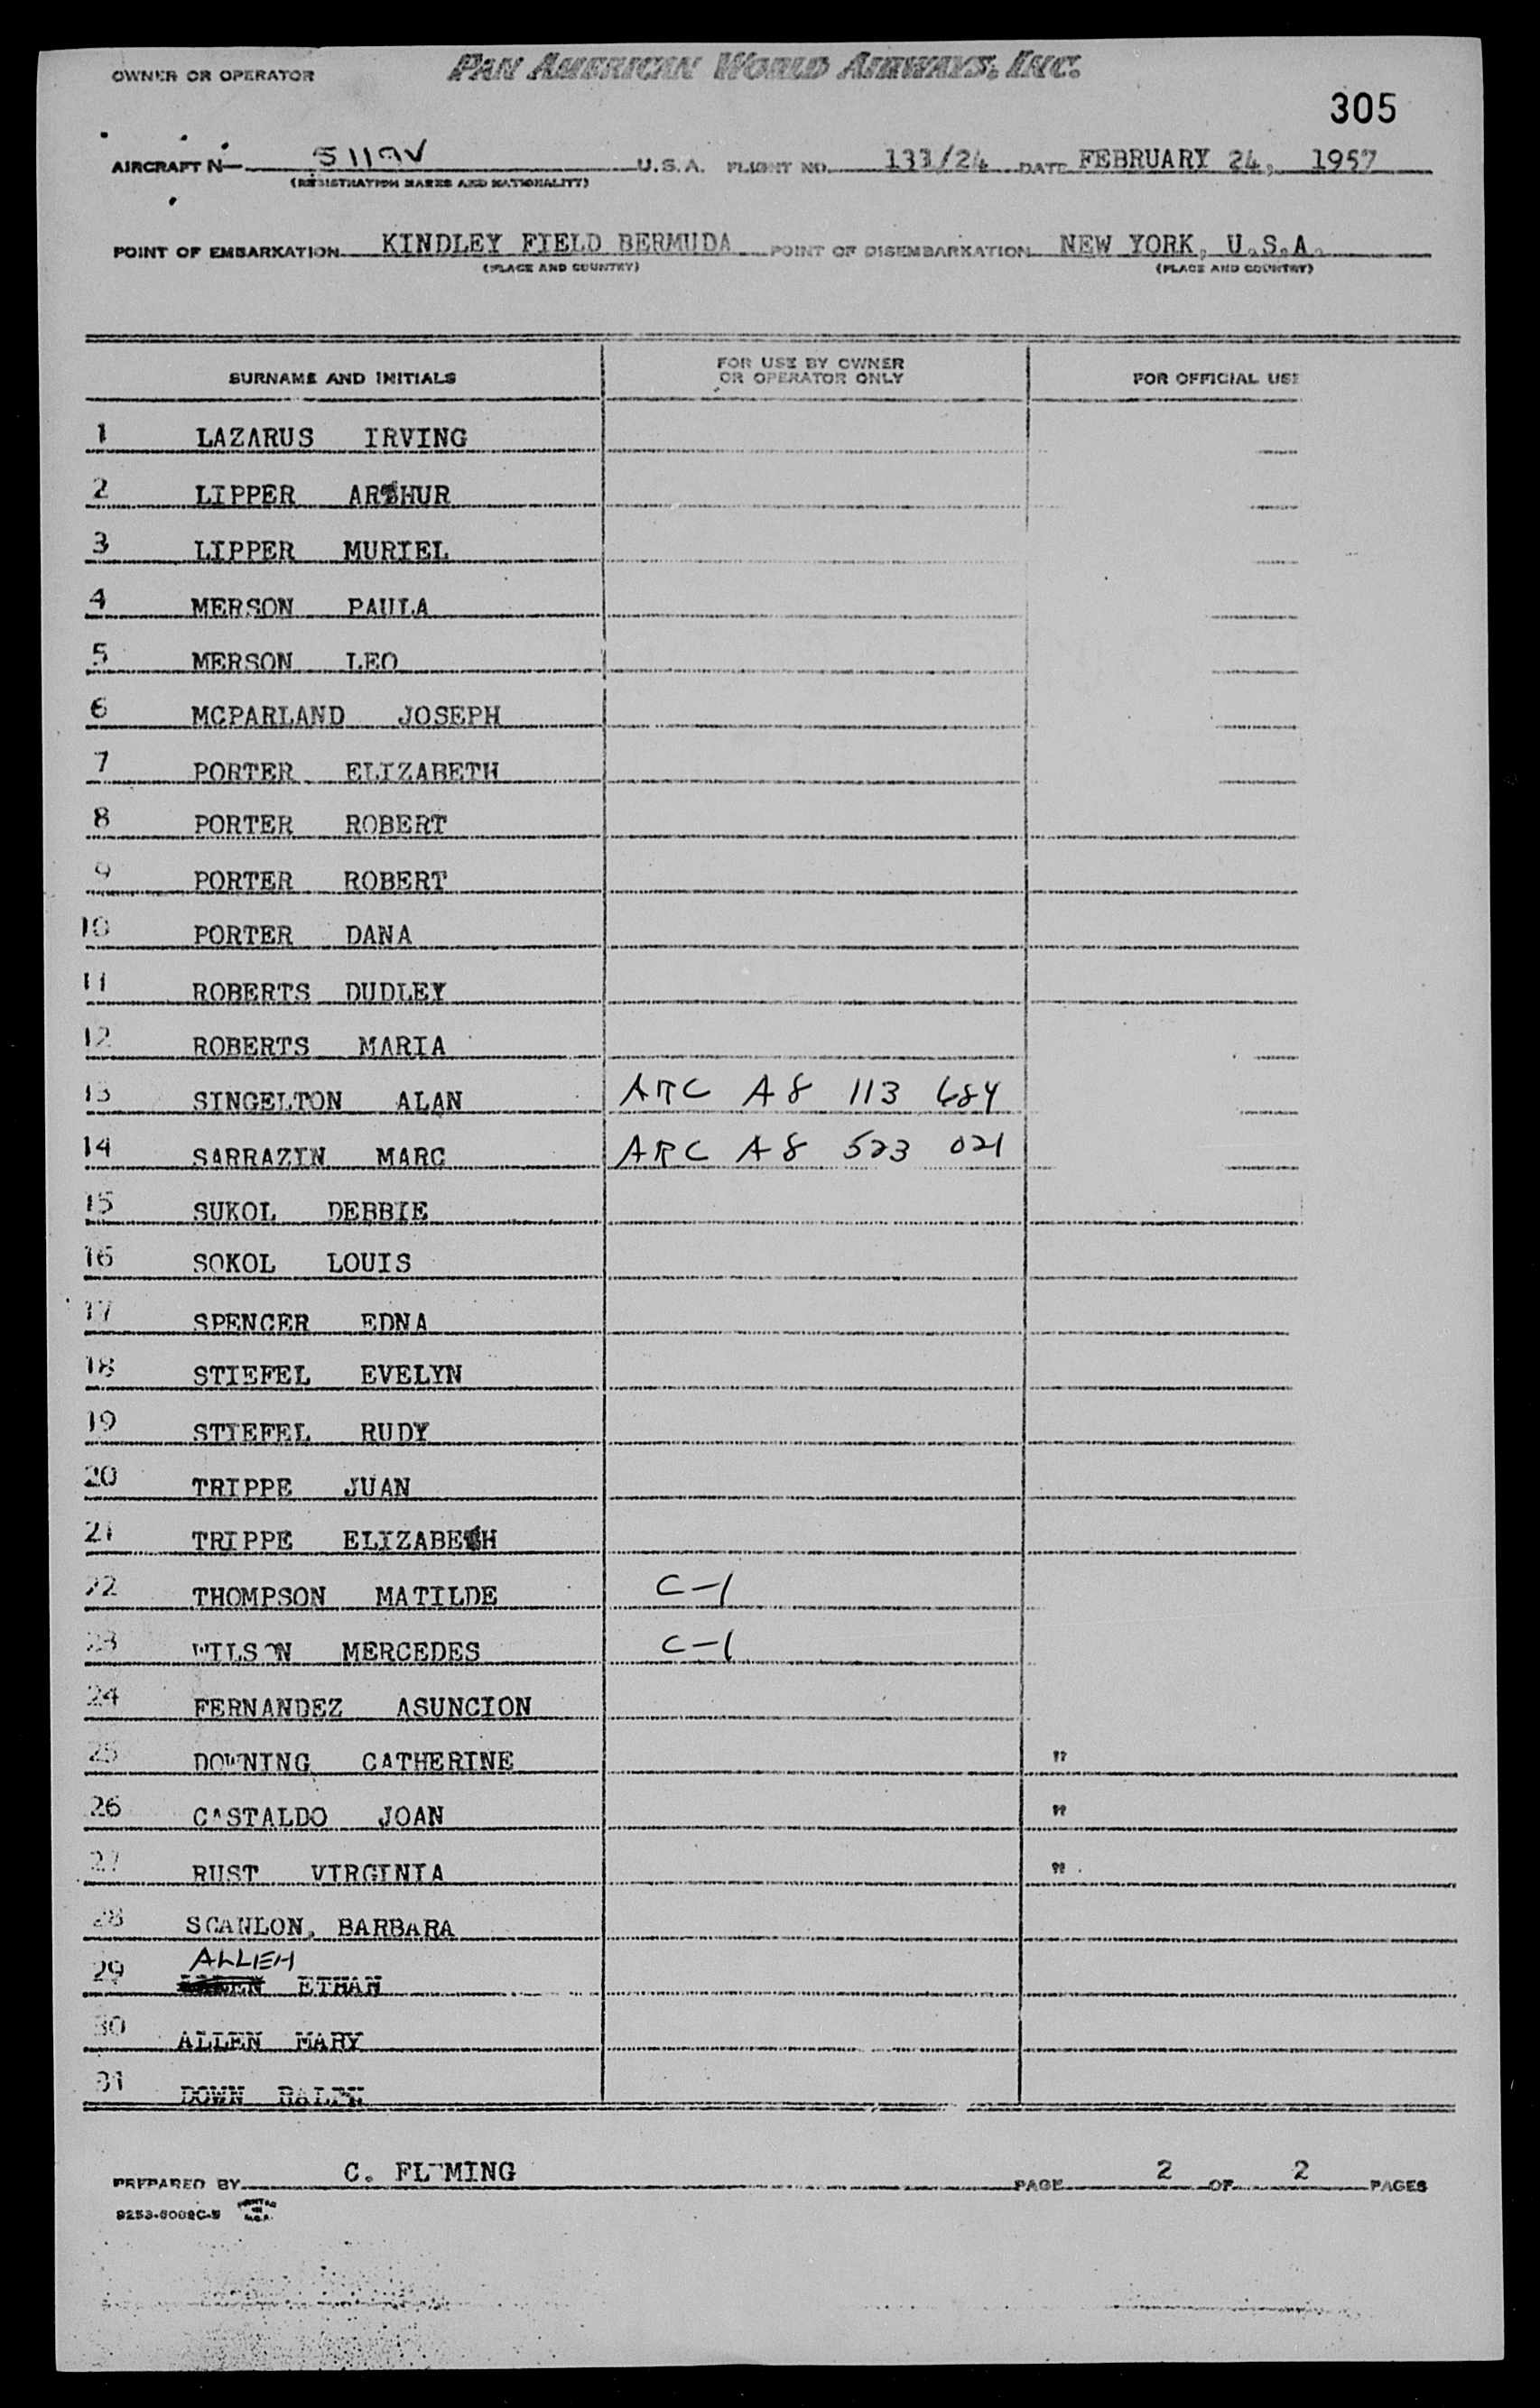 OWNER OR OPERATOR PAN AMERICAN WORLD AIRWAYS, INC.
305
AIRCRAFT N— 5119V U.S.A. FLIGHT NO. 133/24 DATE FEBRUARY 24, 1957
(REGISTRATION MARKS AND NATIONALITY)
POINT OF EMBARKATION KINDLEY FIELD BERMUDA POINT OF DISEMBARKATION NEW YORK, U.S.A.
(PLACE AND COUNTRY) (PLACE AND COUNTRY)
SURNAME AND INITIALS FOR USE BY OWNER OR OPERATOR ONLY FOR OFFICIAL USE
1 LAZARUS IRVING
2 LIPPER ARTHUR
3 LIPPER MURIEL
4 MERSON PAULA
5 MERSON LEO
6 MCPARLAND JOSEPH
7 PORTER ELIZABETH
8 PORTER ROBERT
9 PORTER ROBERT
10 PORTER DANA
11 ROBERTS DUDLEY
12 ROBERTS MARIA
13 SINGELTON ALAN ARC A8 113 684
14 SARRAZIN MARC ARC A8 523 021
15 SUKOL DEBBIE
16 SOKOL LOUIS
17 SPENCER EDNA
18 STIEFEL EVELYN
19 STIEFEL RUDY
20 TRIPPE JUAN
21 TRIPPE ELIZABETH
22 THOMPSON MATILDE C-1
23 WILSON MERCEDES C-1
24 FERNANDEZ ASUNCION
25 DOWNING CATHERINE "
26 CASTALDO JOAN "
27 RUST VIRGINIA "
28 SCANLON, BARBARA
ALLEN
29 ETHAN
30 ALLEN MARY
31 DOWN RALPH
PREPARED BY C. FLEMING PAGE 2 OF 2 PAGES
PRINTED IN U.S.A.